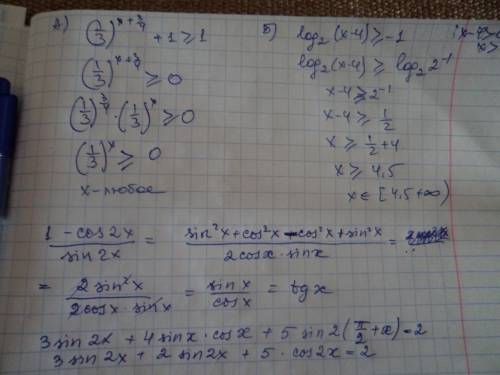 А) (1/3)^(x+3/4) + 1 ⩾ 1
(1/3)^(x+3/4) ⩾ 0
(1/3)^(3/4) · (1/3)^x ⩾ 0
(1/3)^x ⩾ 0
x - любое
Б) log₂(x-4) ⩾ -1
log₂(x-4) ⩾ log₂2⁻¹
x-4 ⩾ 2⁻¹
x-4 ⩾ 1/2
x ⩾ 1/2 + 4
x ⩾ 4,5
x ∈ [4,5 +∞)
x-4>
x>
(1 - cos2x)/(sin2x) = (sin²x + cos²x - cos²x + sin²x)/(2cosx · sinx) =
= (2sin²x)/(2cosx · sinx) = (sinx)/(cosx) = tgx
3sin2x + 4sinx · cosx + 5sin2(π/2 + x) = 2
3sin2x + 2sin2x + 5 · cos2x = 2